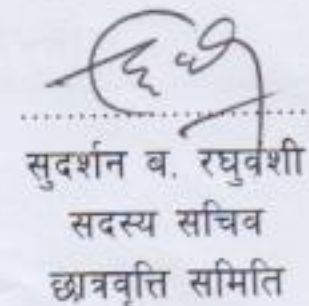 सुदर्शन ब. रघुवंशी
सदस्य सचिव
छात्रवृत्ति समिति